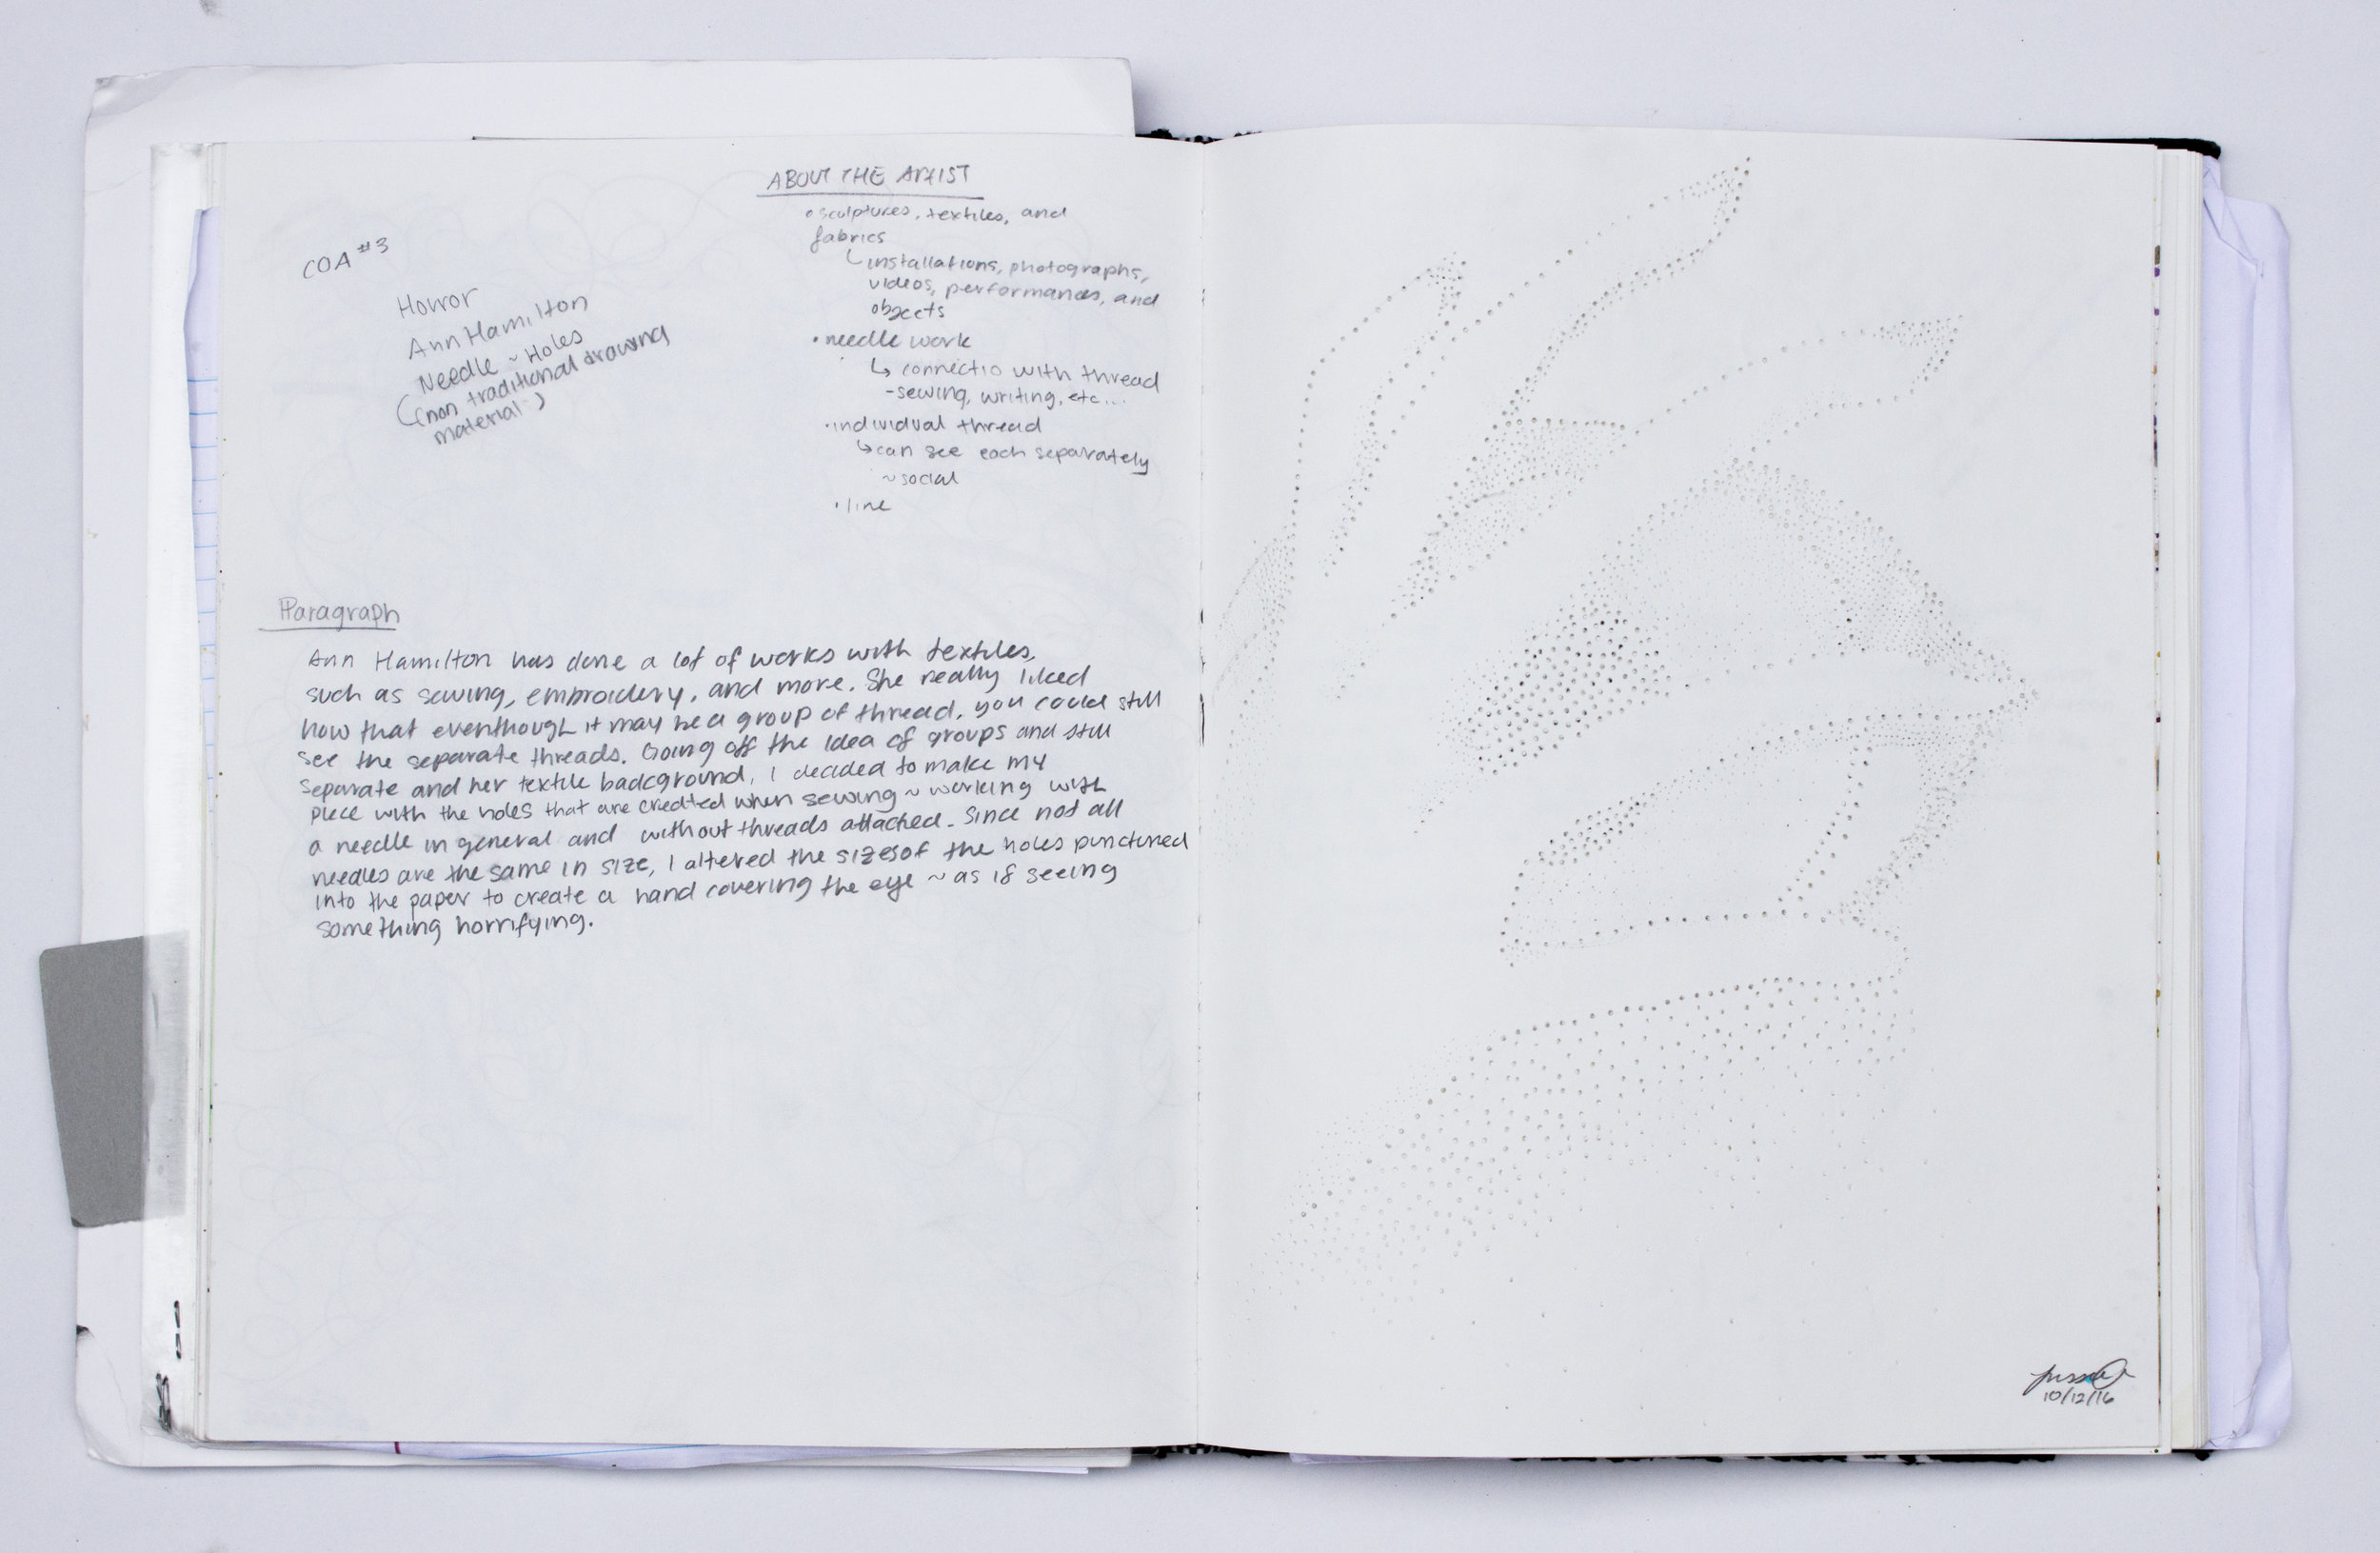 COA #3
Horror
Ann Hamilton
Needle ~ Holes
(non traditional drawing
material)
ABOUT THE ARTIST
• sculptures, textiles, and
fabrics
↳ installations, photographs,
videos, performances, and
objects
• needle work
↳ connectio with thread
- sewing, writing, etc...
• individual thread
↳ can see each separately
~ social
• line
Paragraph
Ann Hamilton has done a lot of works with textiles,
such as sewing, embroidery, and more. She really liked
how that eventhough it may be a group of thread, you could still
see the separate threads. Going off the idea of groups and still
separate and her textile background, I decided to make my
piece with the holes that are created when sewing ~ working with
a needle in general and without threads attached. Since not all
needles are the same in size, I altered the sizes of the holes punctured
into the paper to create a hand covering the eye ~ as if seeing
something horrifying.
10/12/16